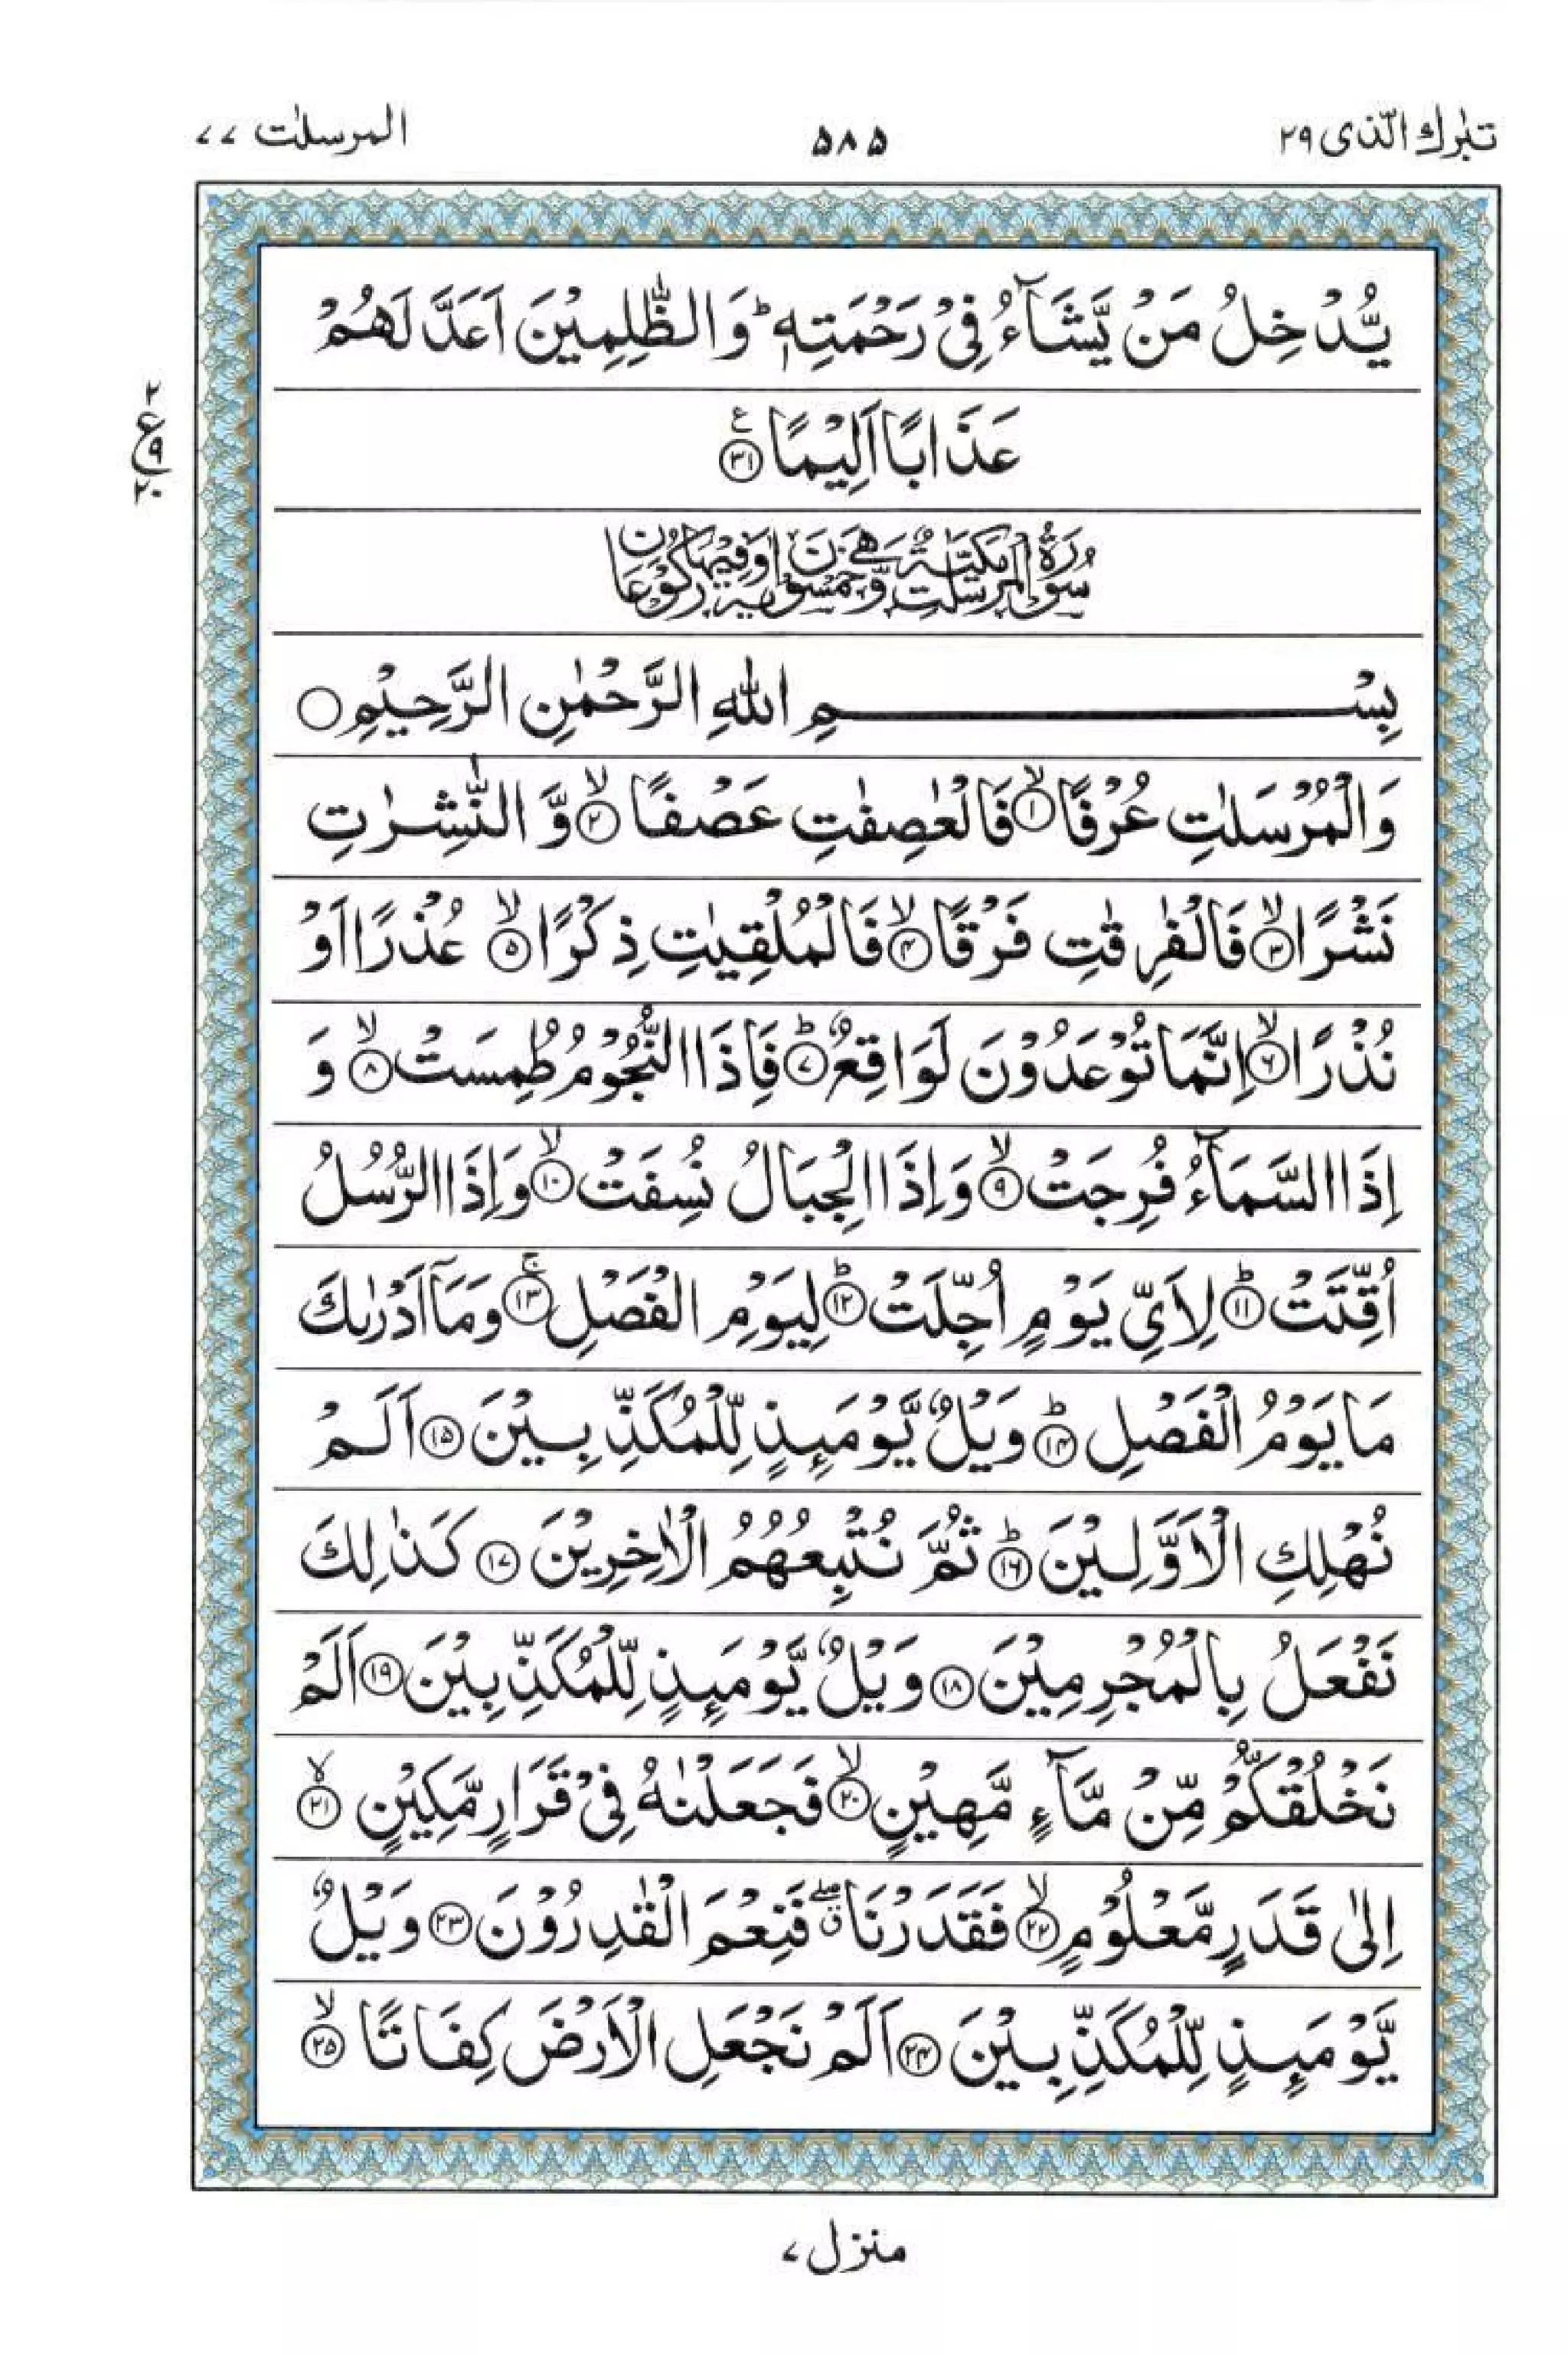 تبٰرك الّذی ۲۹
۵۸۵
المرسلٰت ۷۷
یُّدْخِلُ مَنْ یَّشَآءُ فِیْ رَحْمَتِهٖ ؕ وَ الظّٰلِمِیْنَ اَعَدَّ لَهُمْ
۲
ع
۹
۲۰
عَذَابًا اَلِیْمًا ﴿۳۱﴾ ع
سُوْرَةُ الْمُرْسَلٰتِ مَكِّیَّةٌ وَّهِیَ خَمْسُوْنَ اٰیَةً وَّفِیْهَا رُكُوْعَانِ
بِسْمِ اللهِ الرَّحْمٰنِ الرَّحِیْمِ ○
وَالْمُرْسَلٰتِ عُرْفًا ﴿۱﴾ ۙ فَالْعٰصِفٰتِ عَصْفًا ﴿۲﴾ ۙ وَّ النّٰشِرٰتِ
نَشْرًا ﴿۳﴾ ۙ فَالْفٰرِقٰتِ فَرْقًا ﴿۴﴾ ۙ فَالْمُلْقِیٰتِ ذِكْرًا ﴿۵﴾ ۙ عُذْرًا اَوْ
نُذْرًا ﴿۶﴾ ۙ اِنَّمَا تُوْعَدُوْنَ لَوَاقِعٌ ﴿۷﴾ ؕ فَاِذَا النُّجُوْمُ طُمِسَتْ ﴿۸﴾ ۙ وَ
اِذَا السَّمَآءُ فُرِجَتْ ﴿۹﴾ ۙ وَاِذَا الْجِبَالُ نُسِفَتْ ﴿۱۰﴾ ۙ وَاِذَا الرُّسُلُ
اُقِّتَتْ ﴿۱۱﴾ ؕ لِاَیِّ یَوْمٍ اُجِّلَتْ ﴿۱۲﴾ ؕ لِیَوْمِ الْفَصْلِ ﴿۱۳﴾ ۚ وَمَاۤ اَدْرٰىكَ
مَا یَوْمُ الْفَصْلِ ﴿۱۴﴾ ؕ وَیْلٌ یَّوْمَىِٕذٍ لِّلْمُكَذِّبِیْنَ ﴿۱۵﴾ اَلَمْ
نُهْلِكِ الْاَوَّلِیْنَ ﴿۱۶﴾ ؕ ثُمَّ نُتْبِعُهُمُ الْاٰخِرِیْنَ ﴿۱۷﴾ كَذٰلِكَ
نَفْعَلُ بِالْمُجْرِمِیْنَ ﴿۱۸﴾ وَیْلٌ یَّوْمَىِٕذٍ لِّلْمُكَذِّبِیْنَ ﴿۱۹﴾ اَلَمْ
نَخْلُقْكُّمْ مِّنْ مَّآءٍ مَّهِیْنٍ ﴿۲۰﴾ ۙ فَجَعَلْنٰهُ فِیْ قَرَارٍ مَّكِیْنٍ ﴿۲۱﴾ ۙ
اِلٰی قَدَرٍ مَّعْلُوْمٍ ﴿۲۲﴾ ۙ فَقَدَرْنَا ۖۗ فَنِعْمَ الْقٰدِرُوْنَ ﴿۲۳﴾ وَیْلٌ
یَّوْمَىِٕذٍ لِّلْمُكَذِّبِیْنَ ﴿۲۴﴾ اَلَمْ نَجْعَلِ الْاَرْضَ كِفَاتًا ﴿۲۵﴾ ۙ
منزل ۷